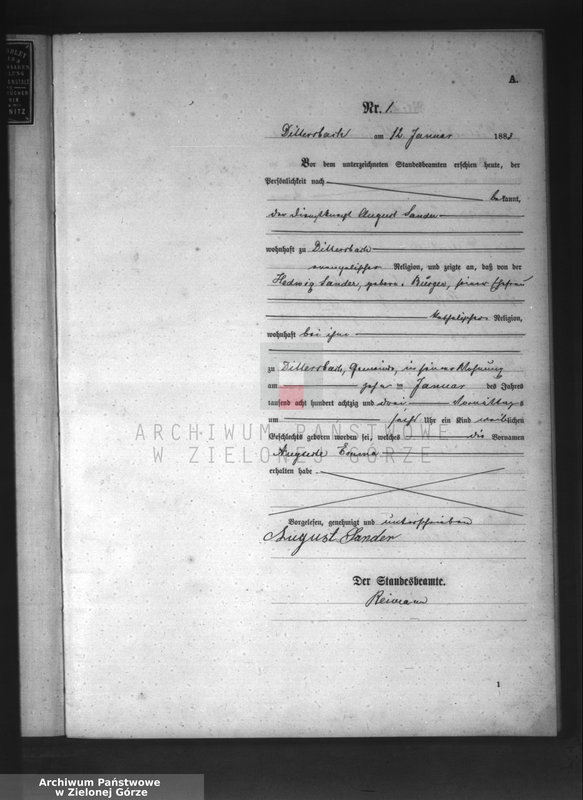 A.
Nr. 1.
Dittersbach am 12. Januar 1883
Vor dem unterzeichneten Standesbeamten erschien heute, der
Persönlichkeit nach
bekannt,
der Dienstknecht August Sander
wohnhaft zu Dittersbach
evangelischer Religion, und zeigte an, daß von der
Hedwig Sander, geborene Bürger, seiner Ehefrau
katholischer Religion,
wohnhaft bei ihm
zu Dittersbach, Gemeinde, in seiner Wohnung
am zehn ten Januar des Jahres
tausend acht hundert achtzig und drei Vormittags
um sechs Uhr ein Kind weiblichen
Geschlechts geboren worden sei, welches die Vornamen
Auguste Emma
erhalten habe.
Vorgelesen, genehmigt und unterschrieben
August Sander
Der Standesbeamte.
Reimann
1
ARCHIWUM PAŃSTWOWE
W ZIELONEJ GÓRZE
Archiwum Państwowe
w Zielonej Górze